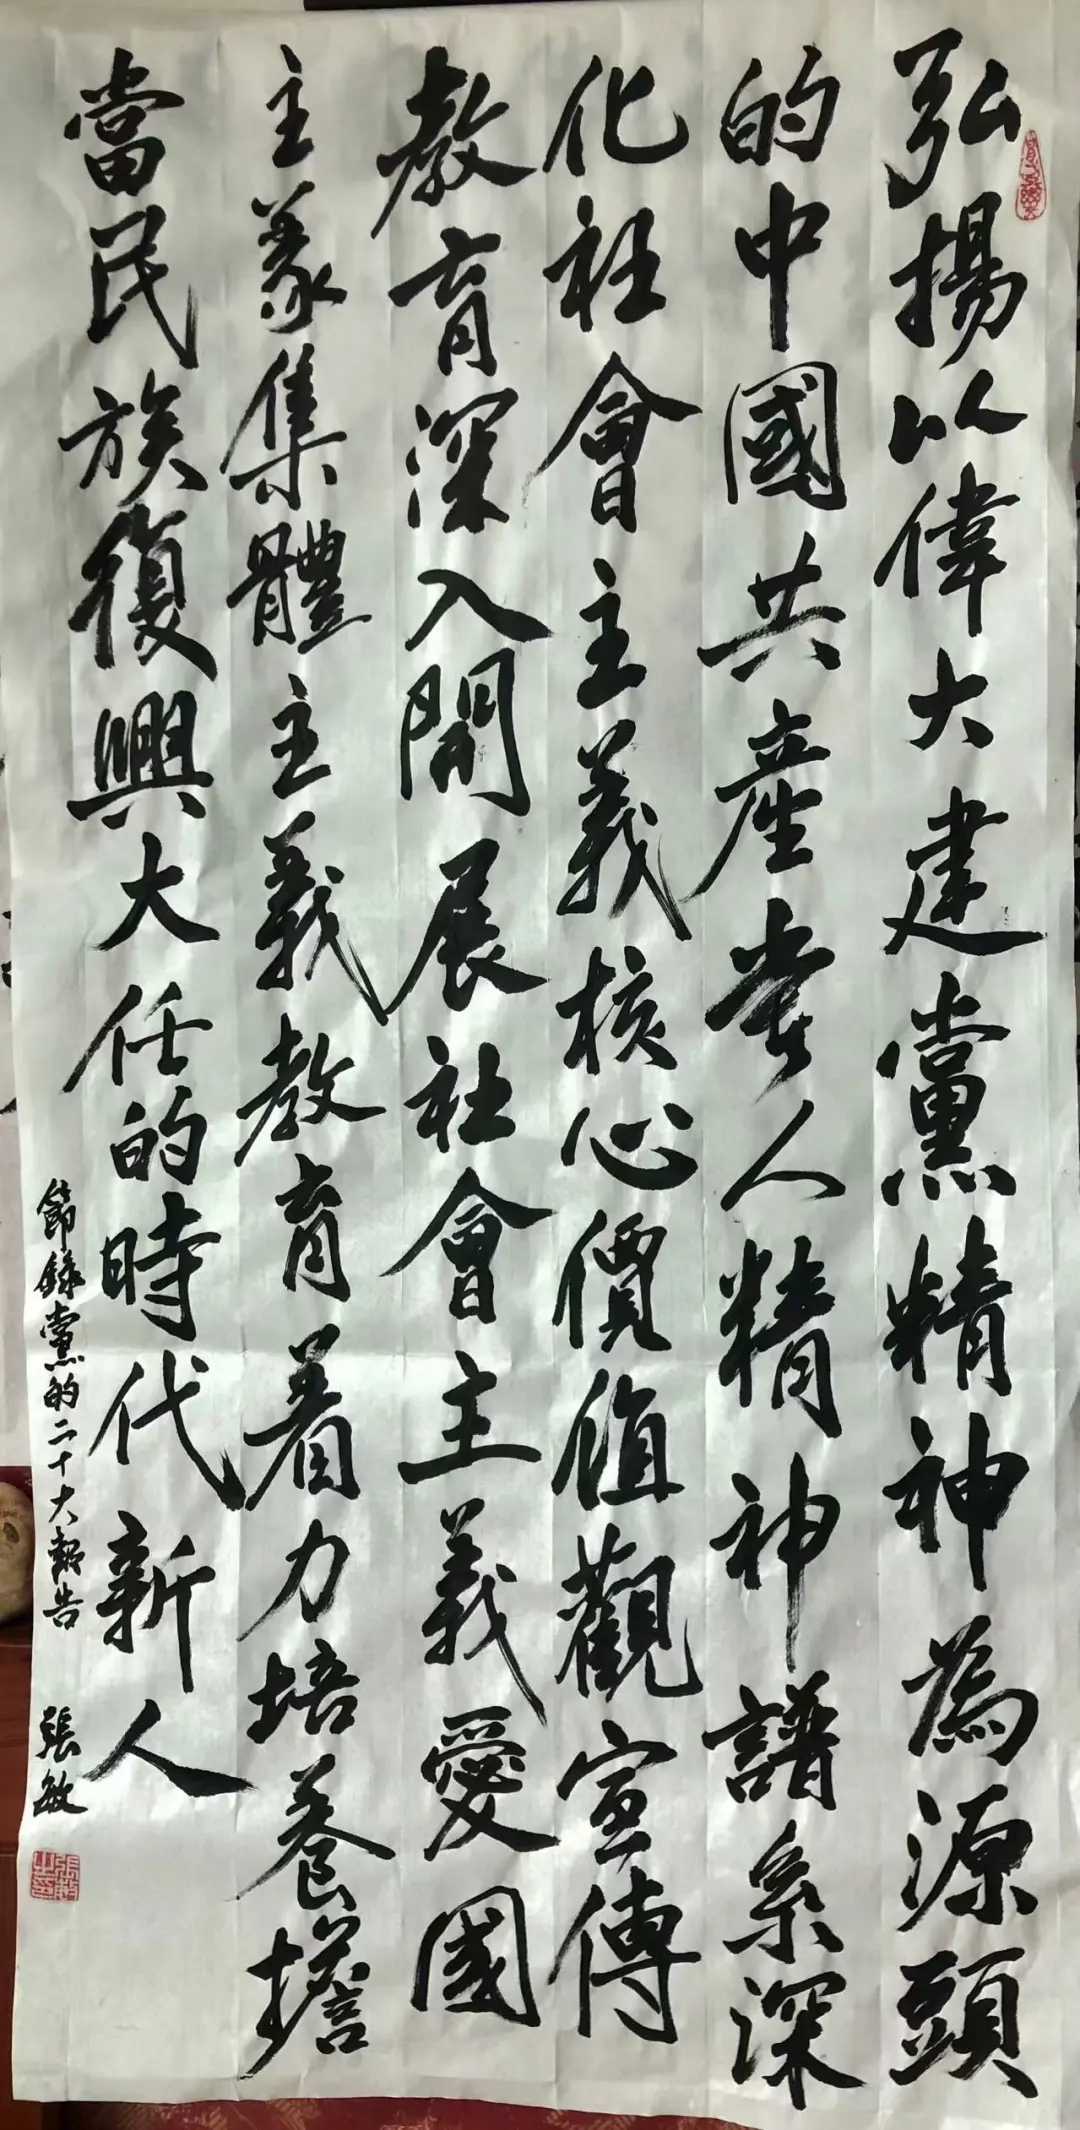 弘揚以偉大建黨精神為源頭
的中國共產黨人精神譜系深
化社會主義核心價值觀宣傳
教育深入開展社會主義愛國
主義集體主義教育着力培養擔
當民族復興大任的時代新人
節錄黨的二十大報告 張敏
張敏之印